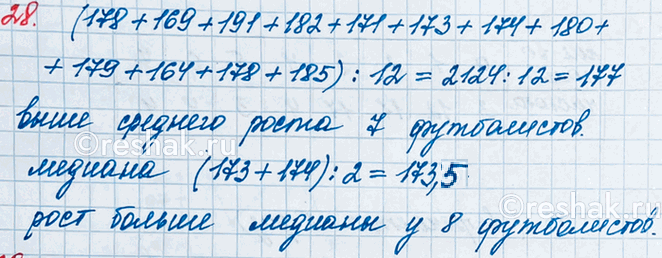 28. (178 + 169 + 191 + 182 + 171 + 173 + 174 + 180 +
+ 179 + 164 + 178 + 185) : 12 = 2124 : 12 = 177
выше среднего роста 7 футболистов.
медиана (173 + 174) : 2 = 173,5
рост больше медианы у 8 футболистов.
reshak.ru